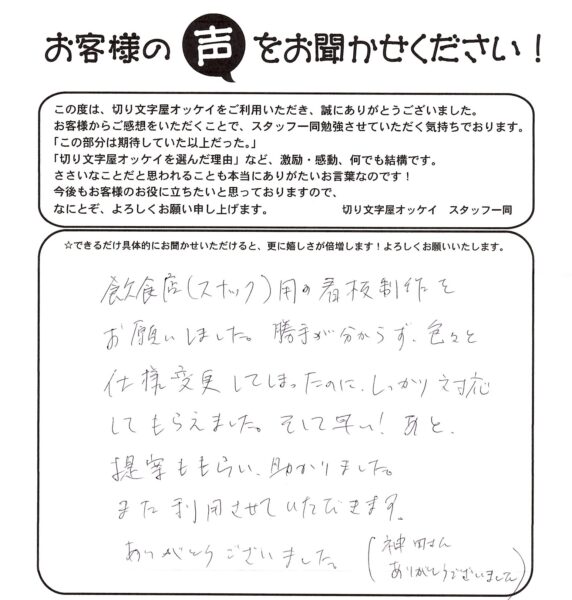 お客様の声をお聞かせください！
この度は、切り文字屋オッケイをご利用いただき、誠にありがとうございました。
お客様からご感想をいただくことで、スタッフ一同勉強させていただく気持ちでおります。
「この部分は期待していた以上だった。」
「切り文字屋オッケイを選んだ理由」など、激励・感動、何でも結構です。
ささいなことだと思われることも本当にありがたいお言葉なのです！
今後もお客様のお役に立ちたいと思っておりますので、
なにとぞ、よろしくお願い申し上げます。 切り文字屋オッケイ スタッフ一同
☆できるだけ具体的にお聞かせいただけると、更に嬉しさが倍増します！よろしくお願いいたします。
飲食店(スナック)用の看板制作を
お願いしました。勝手が分からず、色々と
仕様変更してしまったのに、しっかり対応
してもらえました。そして早い！あと、
提案ももらい、助かりました。
また利用させていただきます。
ありがとうございました。
(神田さん
ありがとうございました)